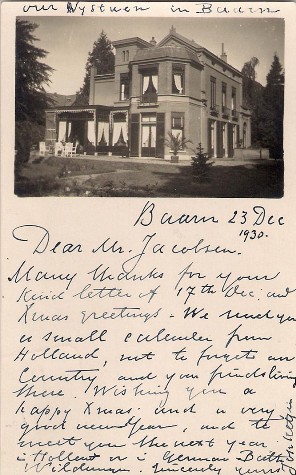 our Nystuen in Baarn
Baarn 23 Dec
1930.
Dear Mr. Jacobsen.
Many thanks for your
kind letter of 17th Dec. and
Xmas greetings. We send you
a small calender from
Holland, not to forget our
Country and your friends living
there. Wishing you a
happy Xmas and a very
good new year, and to
meet you the next year
i Holland or i German Bath
Wildungen. Sincerely yours